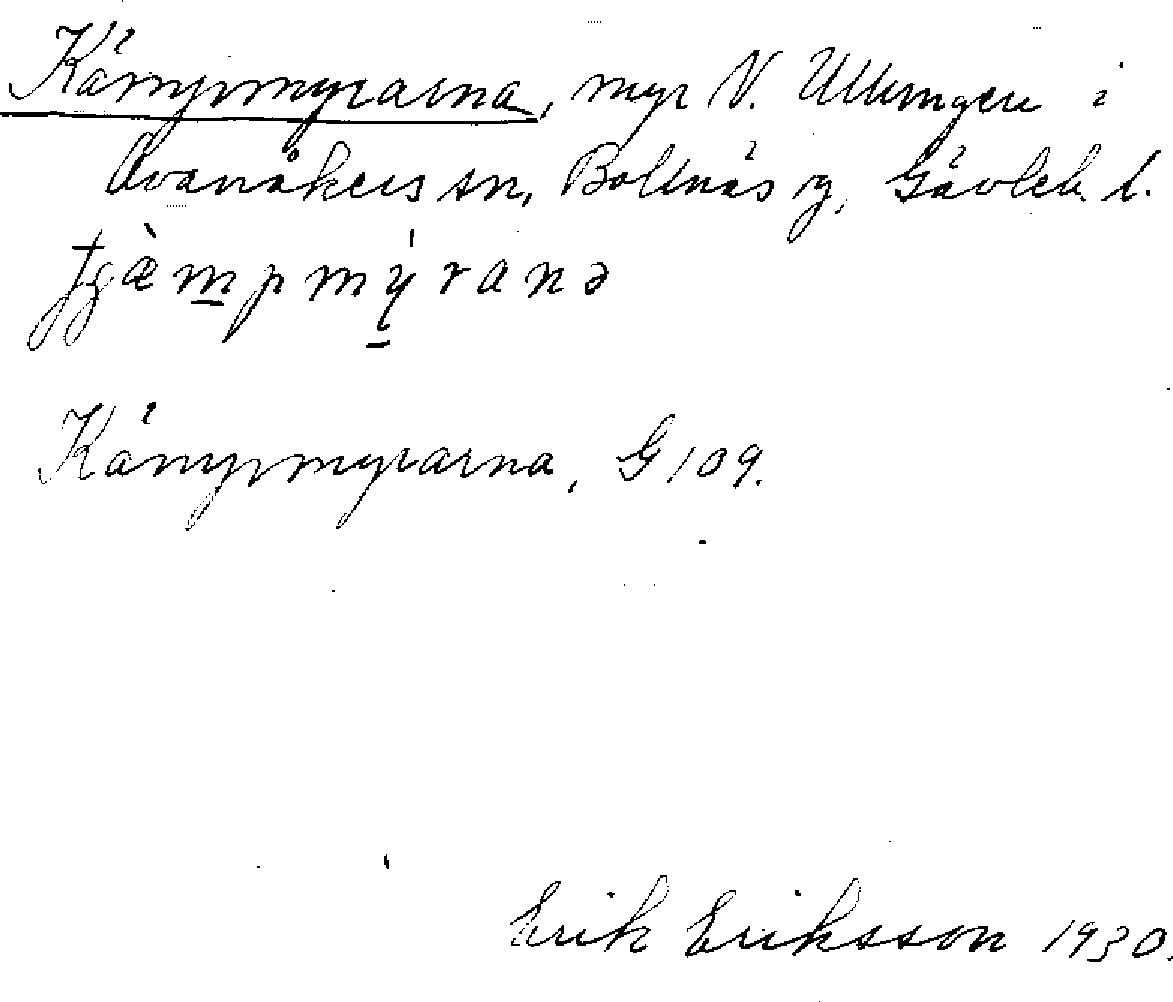 Kämpmyrarna, myr N. Ullungen i
Ovanåkers sn, Bollnäs g, Gävleb. l.
tjæ̀mpmýranə
Kämpmyrarna, G 109.
Erik Eriksson 1930.